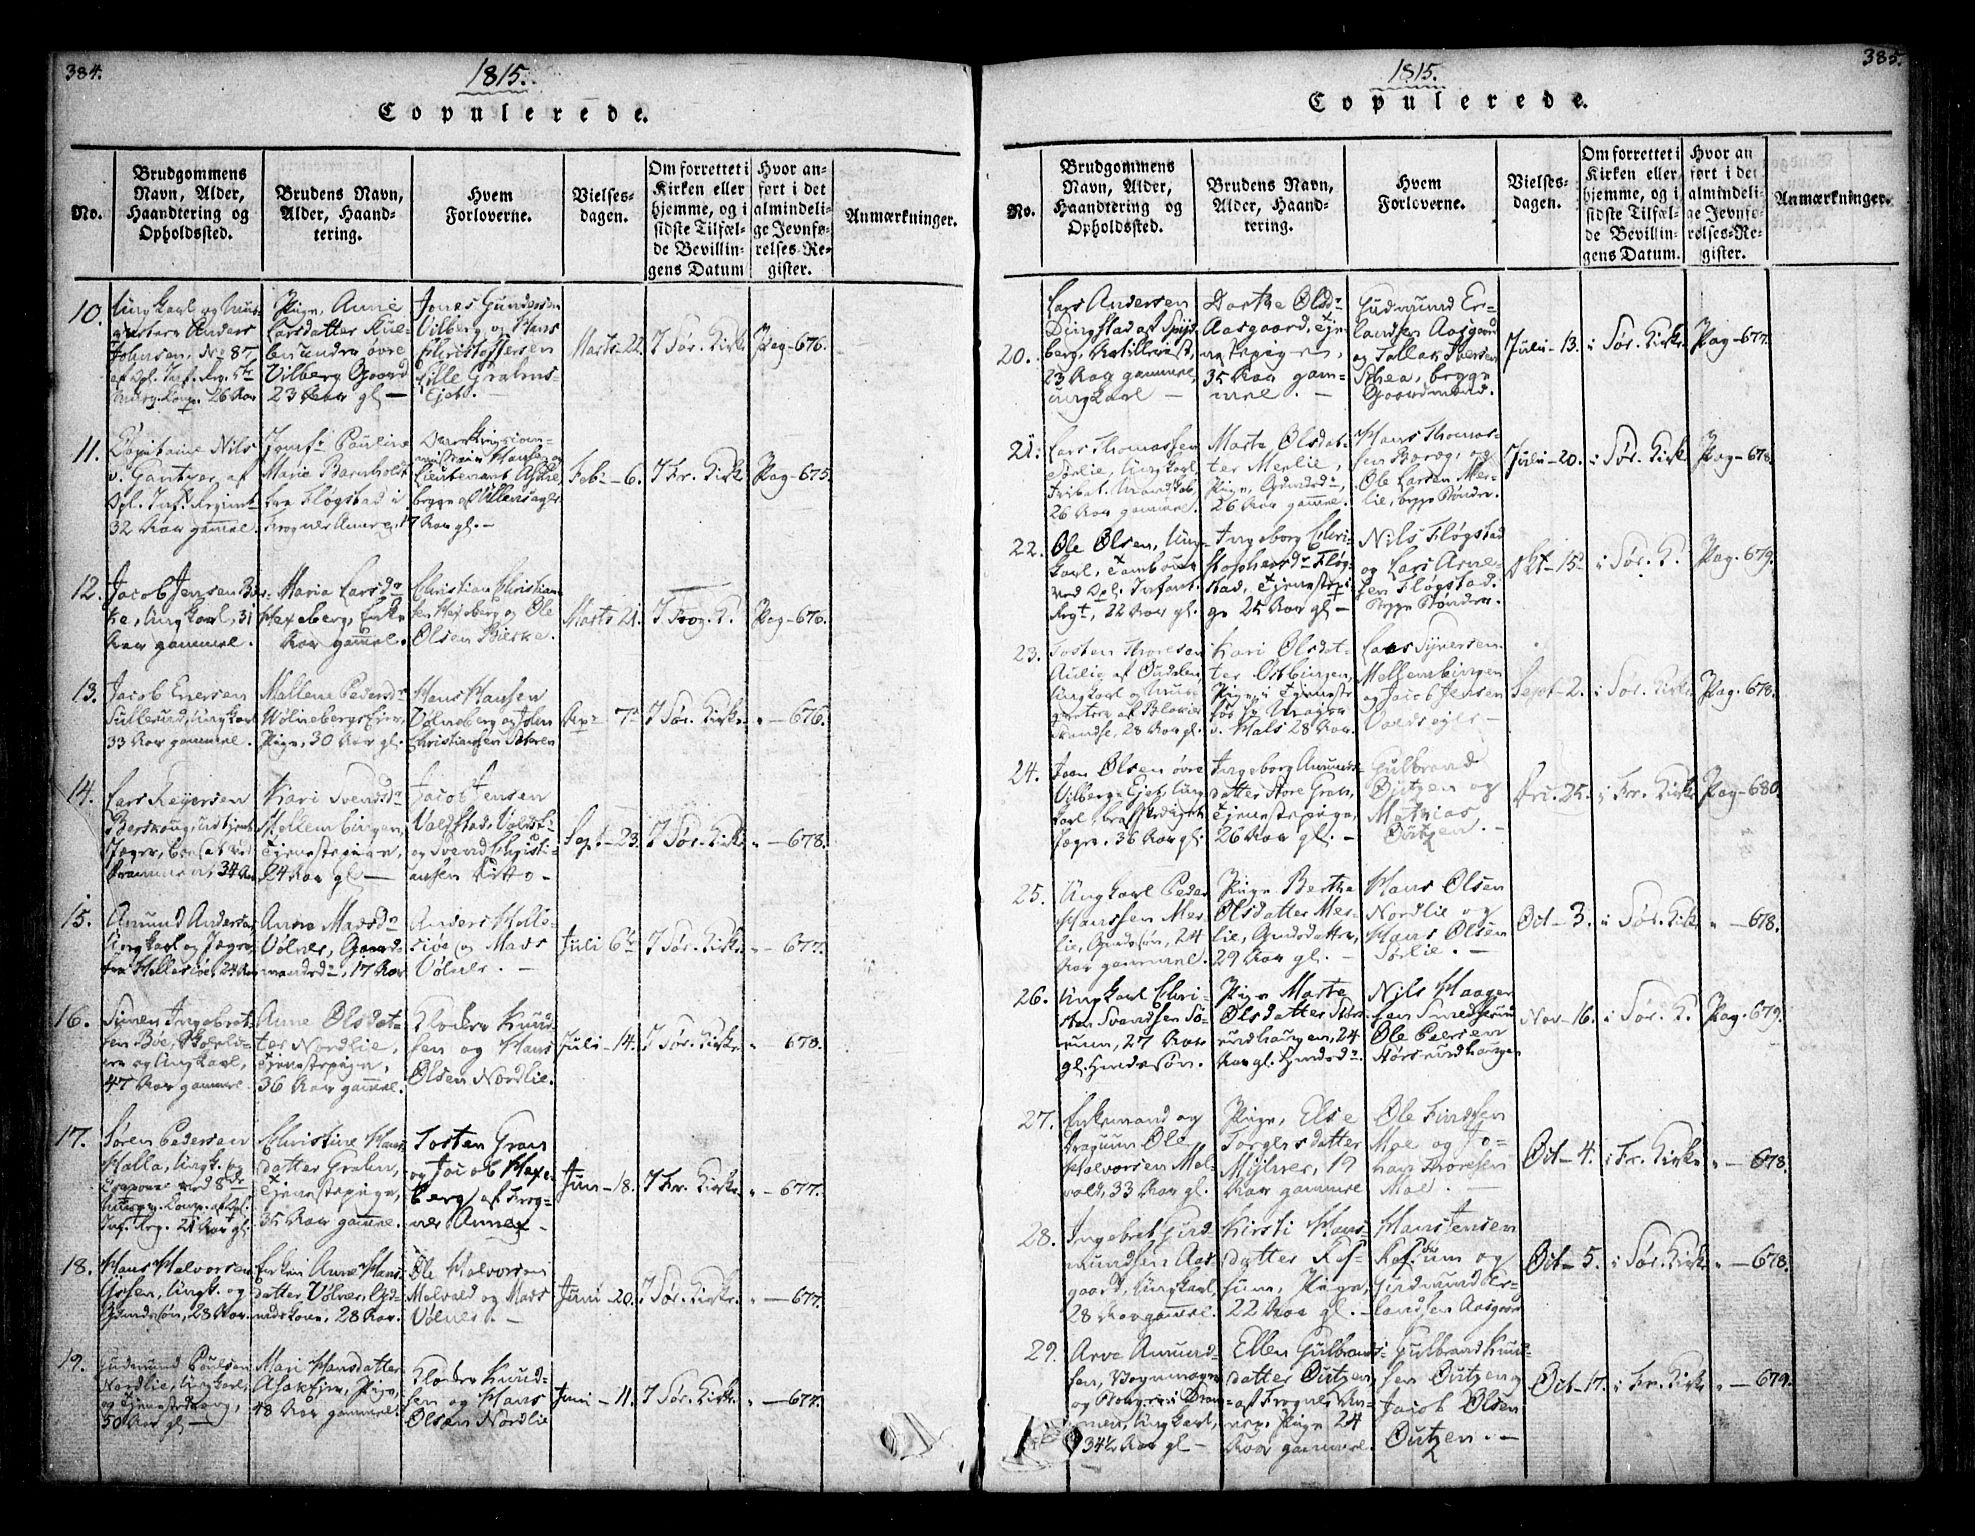 384.
1815.
Copulerede.
No.
Brudgommens Navn, Alder, Haandtering og Opholdssted.
Brudens Navn, Alder, Haandtering.
Hvem Forloverne.
Vielsesdagen.
Om forrettet i Kirken eller hjemme, og i sidste Tilfælde Bevillingens Datum
Hvor anført i det almindelige Jevnførelses-Register.
Anmærkninger.
10.
Ungkarl og
Anders
Johnsen, No 87,
26 Aar
Pige, Anne
Larsdatter
øvre
Vilberg Gaard
23 Aar gl —
Jonas Gundersen
Vilberg og Hans
Christophersen
Lille Grahns-
Ejet.
Marts - 22.
I Sør. Kirke
Pag - 676.
11.
Capitaine Nils
v. Gantzer, af
Inf. Regimt
32 Aar gammel.
Jomf. Pauline
Marie Barnholdt
fra Fløgstad i
Frogner Annex, 17
Aar gl. —
Lieutenant
begge af Ullensager
Feb - 6.
I Fr. Kirk
Pag - 675.
12.
Jacob Jensen Bier-
ke, Ungkarl, 31
Aar gammel.
Maria Larsdr
Hexeberg, Enke
Aar gammel.
Christian Christian-
sen Hexeberg og Ole
Olsen Bierke.
Marts 21.
I Frog. K.
Pag - 676.
13.
Jacob Enersen
Sulerud, Ungkarl
33 Aar gammel.
Mallene Pedersdr
Wølnebergs Ejer,
Pige, 30 Aar gl.
Hans Hansen
Vølneberg og John
Christiansen
Apr - 7.
I Sør. Kirke
" - 676.
14.
Lars Reyersen
Jæger,
34 Aar
Kari Svendsdr
Mellembingen,
Tjenestepige,
24 Aar gl —
Jacob Jensen
Valstad,
og Svend Christi-
ansen Ditto -
Sept - 23.
I Sør. Kirke
" - 678.
15.
Amund Andersen,
Ungkarl og Jæger
fra Hellesiøe, 24 Aar
Anne Madsdr
Vølner, Gaard-
mandsdr, 17 Aar
Anders Helle-
siøe og Mads
Vølner. —
Juli 6te
I Sør. Kirke
" - 677.
16.
Simen Ingebret-
sen Boe,
og Ungkarl,
47 Aar gammel.
Anne Olsdat-
ter Nordlie,
Tjenestepige,
36 Aar gammel.
Kloder Knud-
sen og Hans
Olsen Nordlie.
Juli - 14.
I Sør. Kirke
" 678.
17.
Søren Pedersen
Halla, Ungk. og
med 8de
Comp. af
Inf. Reg. 21 Aar gl
Christine Hans-
datter Grahn,
Tjenestepige,
35 Aar gammel.
Tosten Gran
og Jacob Hexe-
berg af Frog-
ner Annex —
Jun - 18.
I Fr. Kirke
" - 677.
18.
Hans Halvorsen
Ungk. og
Gaardsøn, 28 Aar.
Enken Anne Hans-
datter, Vølner,
28 Aar.
Ole Halvorsen
Melvold og Mads
Vølner. —
Juni - 20.
I Sør. Kirke
" - 677.
19.
Gudmund Poulsen
Nordlie, Ungkarl,
og Tjenestedreng,
50 Aar gl —
Mari Hansdatter
Pige,
48 Aar gammel.
Kloder Knud-
sen og Hans
Olsen Nordlie
Juni - 11.
I Sør. Kirke
" - 677.
385.
1815.
Copulerede.
No.
Brudgommens Navn, Alder, Haandtering og Opholdssted.
Brudens Navn, Alder, Haandtering.
Hvem Forloverne.
Vielsesdagen.
Om forrettet i Kirken eller hjemme, og i sidste Tilfælde Bevillingens Datum.
Hvor anført i det almindelige Jevnførelses-Register.
Anmærkninger.
20.
Lars Andersen
Dingstad af Spyd-
berg, Artillerist,
23 Aar gammel,
ungkarl —
Dorthe Olsdr
Aasgaard, Tje-
nestepige,
35 Aar gam-
mel. —
Gudmund Er-
landsen Aasgaard
og Tollak Iversen
begge
Gaardmænd.
Juli - 13.
i Sør. Kirke
Pag - 677.
21.
Lars Thomassen
Ungkarl,
26 Aar gammel.
Marte Olsdat-
ter Merlie,
Pige,
26 Aar gammel.
Hans Thomas-
sen Berg, og
Ole Larsen Mer-
lie, begge Bønder.
Juli - 20.
i Sør. Kirke
Pag - 678.
22.
Ole Olsen, Ung-
karl, Tambour
ved Infant.
Regt, 22 Aar gl.
Ingeborg Chri-
stophersdr Fløg-
stad, Tjenestepi-
ge 25 Aar gl —
Nils Fløgstad
og Lars Arne-
sen Fløgstad.
Begge Bønder.
Okt - 15.
i Sør. K.
Pag. 679.
23.
Tosten Thoresen
af Oudalen,
Ungkarl og
28 Aar gl.
Kari Olsdat-
ter Ostbingen,
Pige, i Tjeneste
hos
28 Aar.
Lars Syversen
Mellembingen
og Jacob Jensen
Sept - 2.
i Sør. Kirke
Pag. 678.
24.
Joen Olsen øvre
Vilbergs Ejet, Ung-
karl,
Jæger. 36 Aar gl.
Ingeborg Amunds-
datter Store Gran,
Tjenestepige,
26 Aar gl. —
Gulbrand
og
Mathias
Outzen. —
25.
i Fr. Kirke
Pag - 680.
25.
Ungkarl Peder
Hanssen Mer-
lie, Gaardsøn, 24
Aar gammel.
Pige Berthe
Olsdatter Mer-
lie,
29 Aar gl. —
Hans Olsen
Nordlie og
Hans Olsen
Sørlie. —
Oct - 3.
i Sør. Kirke
" - 678.
26.
Ungkarl Chri-
sten Svendsen Sø-
rum, 27 Aar
gl.
Pige Marte
Olsdatter Størs-
rudhaugen, 24
Aar gl.
Nils Haager-
sen Smedsrud
Ole Peersen
Størsrudhaugen
Nov - 16.
i Sør. K.
Pag. 679.
27.
Enkemand og
Dragoun Ole
Halvorsen Mel-
vold, 33 Aar gl.
Pige, Else
Torgersdatter
Mylner, 19
Aar gammel
Ole Findsen
Moe og Jo-
han Thoresen
Moe. —
Oct - 4.
i Fr. Kirke
" - 678.
28.
Ingebret Gud-
mundsen Aas-
gaard, Ungkarl,
28 Aar gammel.
Kirsti Hans-
datter Ref-
sum, Pige,
22 Aar gl. —
Hans Jensen
Refsum og
Gudmund Er-
landsen Aasgaard
Oct - 5.
i Sør. Kirke
" - 678.
29.
Arve Amund-
sen, Vognmager
i Dram-
men, Ungkarl,
34½ Aar gl —
Ellen Gulbrands-
datter Outzen,
af Frogner An-
nex, Pige 24
Aar gammel.
Gulbrand Knud-
sen Outzen og
Jacob Olsen
Outzen. —
Oct - 17.
i Fr. Kirke
" - 679.